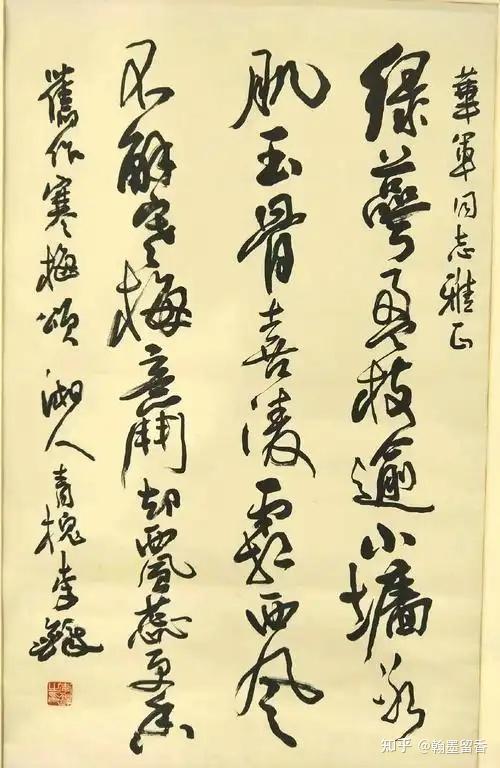 華軍同志雅正
綠萼盈枝逾小墻冰
肌玉骨喜凌霜西風
不解寒梅意鬪却西風蕊更香
舊作寒梅頌 湘人青槐李鐸
知乎 @翰墨留香